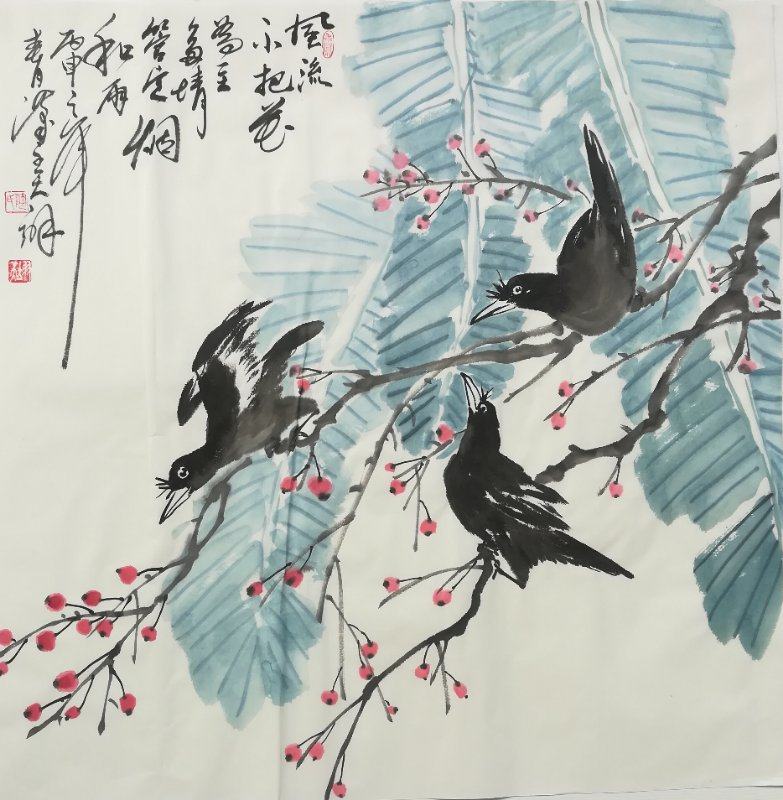 風流
不把花
為主
多情
管定烟
和雨
丙申之年